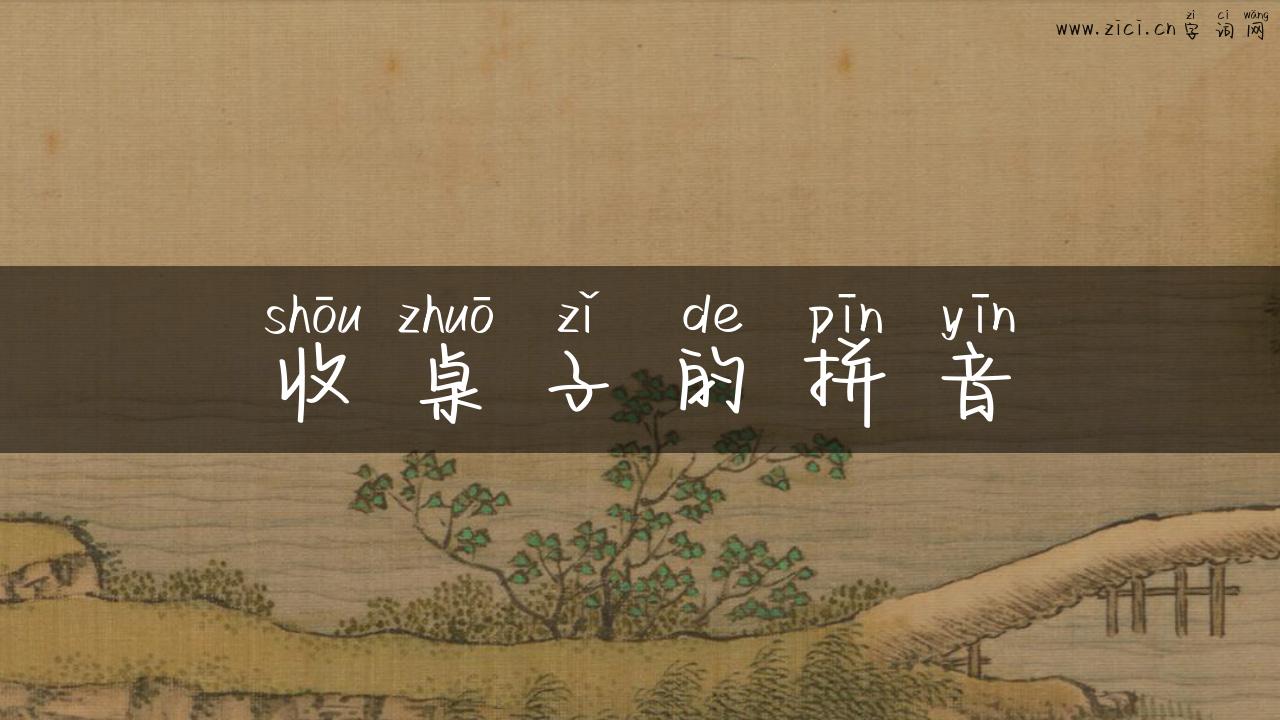 zì cí wǎng
www.zici.cn 字 词 网
shōu zhuō zǐ de pīn yīn
收 桌 子 的 拼 音